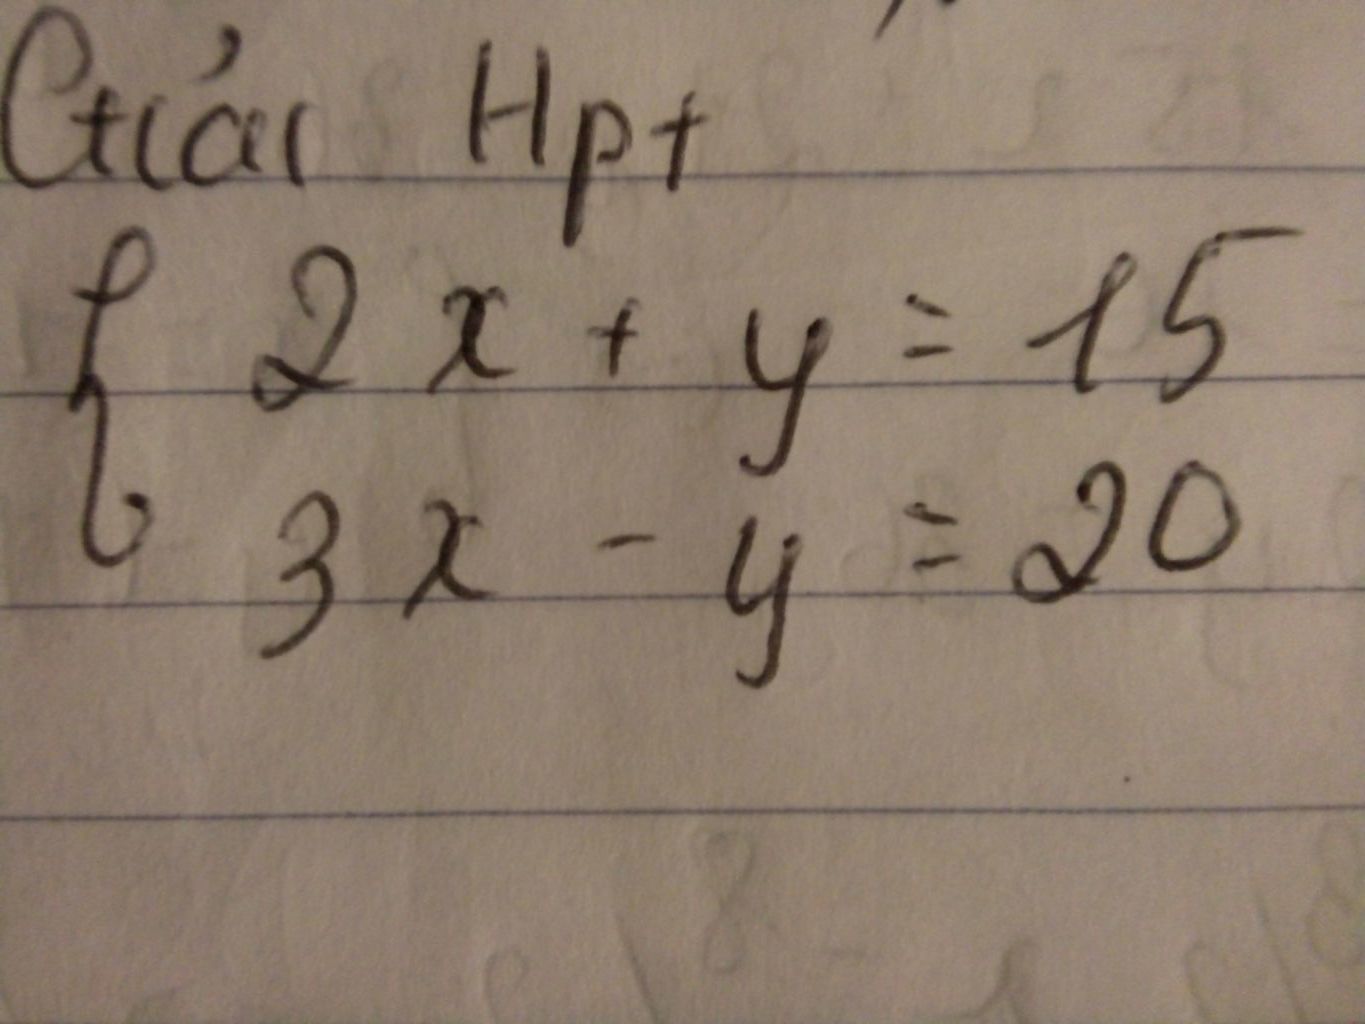 Giải Hpt
{ 2x + y = 15
3x - y = 20